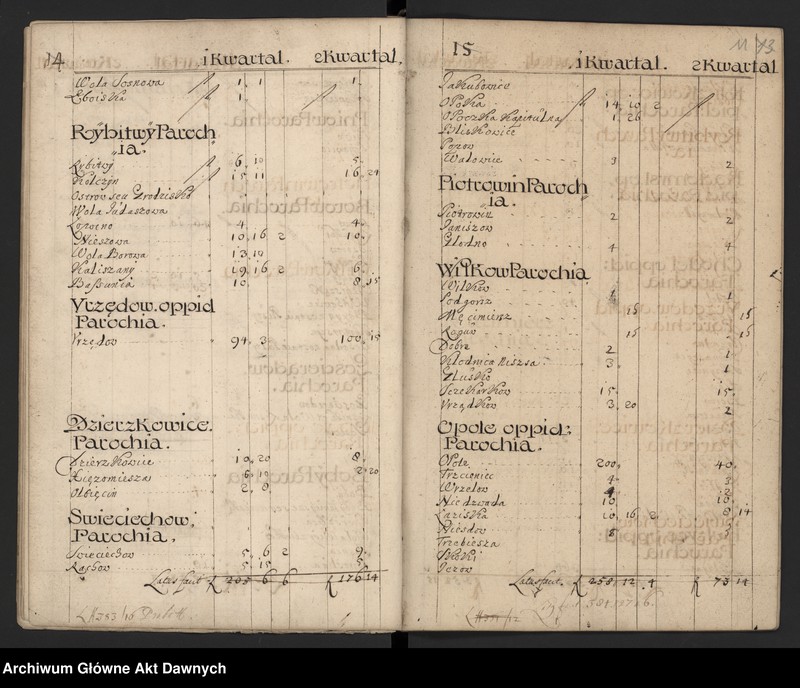 14 1 Kwartal. 2 Kwartal.
Wola Sosnowa 1. 1 1.
1.
Rybitwy Paroch
ia.
Rybitwy 6. 10 5.
Kolczyn 15 11 16. 24
Ostrow seu Grodzisko
Wola Judaszowa
4. 4.
Nieszowa 10. 16 2 10.
Wola Borowa 13. 10
Kaliszany 19. 16 2 6.
10. 8. 15
Vrzędow. oppid
Parochia.
Vrzędow 94. 3 100. 15
Dzierzkowice.
Parochia.
Dzierzkowice 10. 20 8.
Xięzomiesza 6. 10 2. 20
Olbięcin 2. 8
Swieciechow,
Parochia,
Swieciechow 5. 6 2 9.
Rachow 5. 15 5
Latus facit 205 6 6 176 14
15 1 Kwartal. 2 Kwartal
73
Jakubowice
Opoka 14. 10 2
Opoczka Kapitulna 1. 26
Bliskowice
Popow
Walowice 3 2
Piotrowin Paroch
ia.
Piotrowin 2 2
Janiszow
4 4
Wilkow Parochia
Wilkow 1 1
Podgorz
Męcimierz 15 15
15 15
Dobre 2 1
Kłodnica Niszsa 3. 1
Szczekarkow 15. 15.
Vrządkow 3. 20 2
Opole oppid:
Parochia.
Opole 200. 40.
Trzciniec 4. 3
Wrzelow 2
Niedzwada 10 10
Łaziska 10. 16 2 8. 14
Niezdow 8 5
Trzebiesza
Jezow
Latus facit. 258. 12. 4 73 14
Archiwum Główne Akt Dawnych